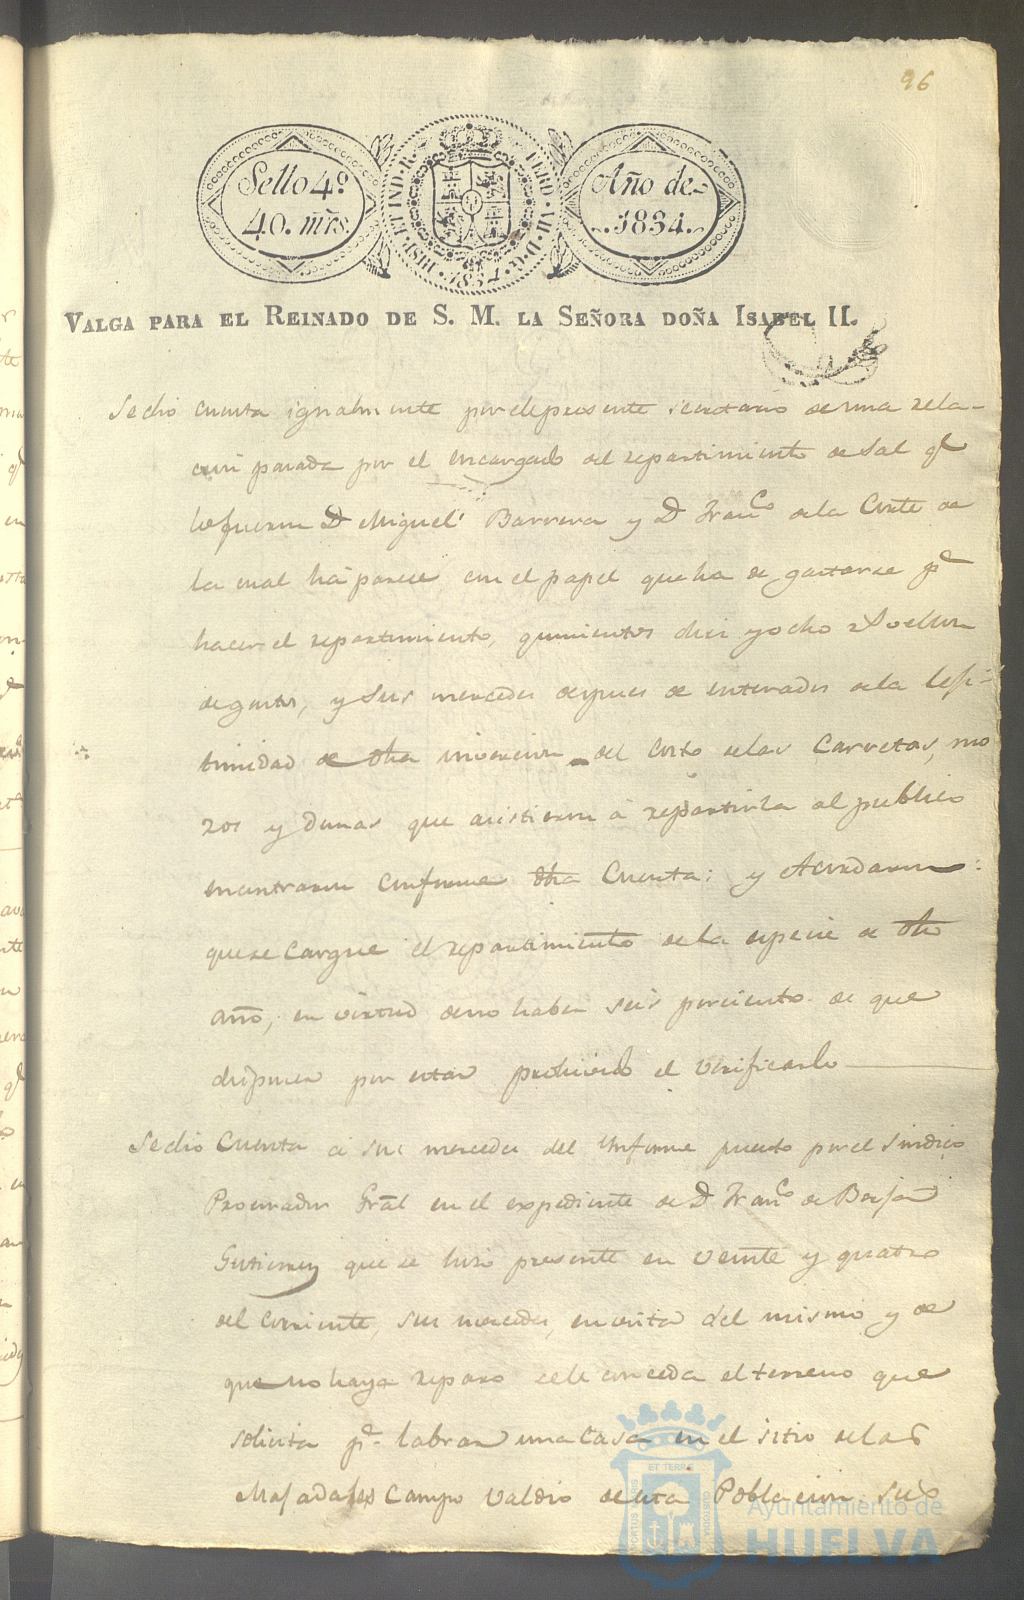 96
Sello 4º
40. mrs.
HISP. ET IND. R. FERD. VII. D. G. 1834
Año de
1834.
VALGA PARA EL REINADO DE S. M. LA SEÑORA DOÑA ISABEL II.
Se dio cuenta igualmente por el presente secretario de una rela-
cion pasada por el encargado del repartimiento de Sal qe
lo fueron Dn Miguel Barrera y Dn Franco de la Corte de
la cual há parece con el papel que ha de gastarse pa
hacer el repartimiento, quinientos diez y ocho rs vellon
de gastos, y sus mercedes despues de enterados de la lexi-
timidad de dha inversion del costo de las Carretas, mo
zos y demas que asistieron á repartirla al publico
encontraron conforme dha Cuenta: y Acordaron:
que se cargue el repartimiento de la especie de dho
año, en virtud de no haber seis por ciento de que
disponer por estar prohivido el Verificarlo
Se dio Cuenta á sus mercedes del Ynforme puesto por el Sindico
Procurador Gral en el expediente de Dn Franco de Borja
Gutierrez que se hizo presente en veinte y quatro
del Corriente, sus mercedes, en vista del mismo y de
que no haya reparo se le conceda el terreno que
solicita pa labrar una Casa en el sitio de las
Campo Valdio de esta Poblacion sus
ET TERRE
PORTUS MARIS
CUSTODIA
Ayuntamiento de
HUELVA